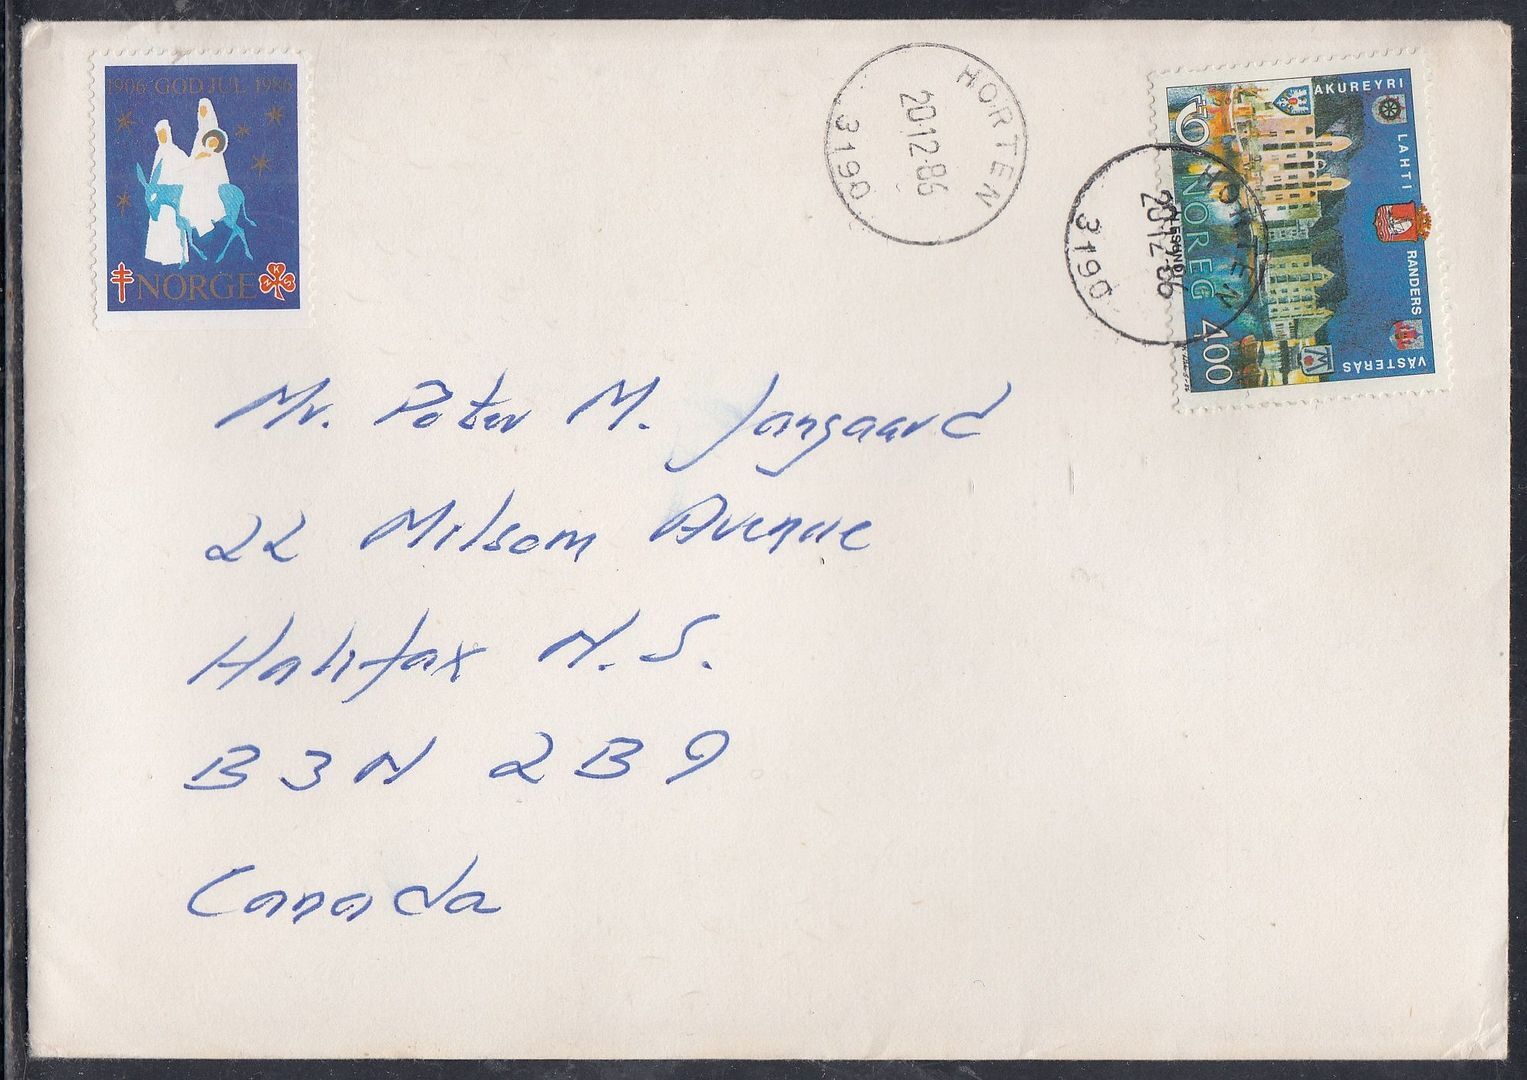 1906 GOD JUL 1986
NORGE
HORTEN
20.12.86
3190
HORTEN
20.12.86
3190
AKUREYRI
LAHTI
RANDERS
VÄSTERÅS
NOREG
400
Mr. Peter M. Jangaard
22 Milsom Avenue
Halifax N.S.
B3N 2B9
Canada